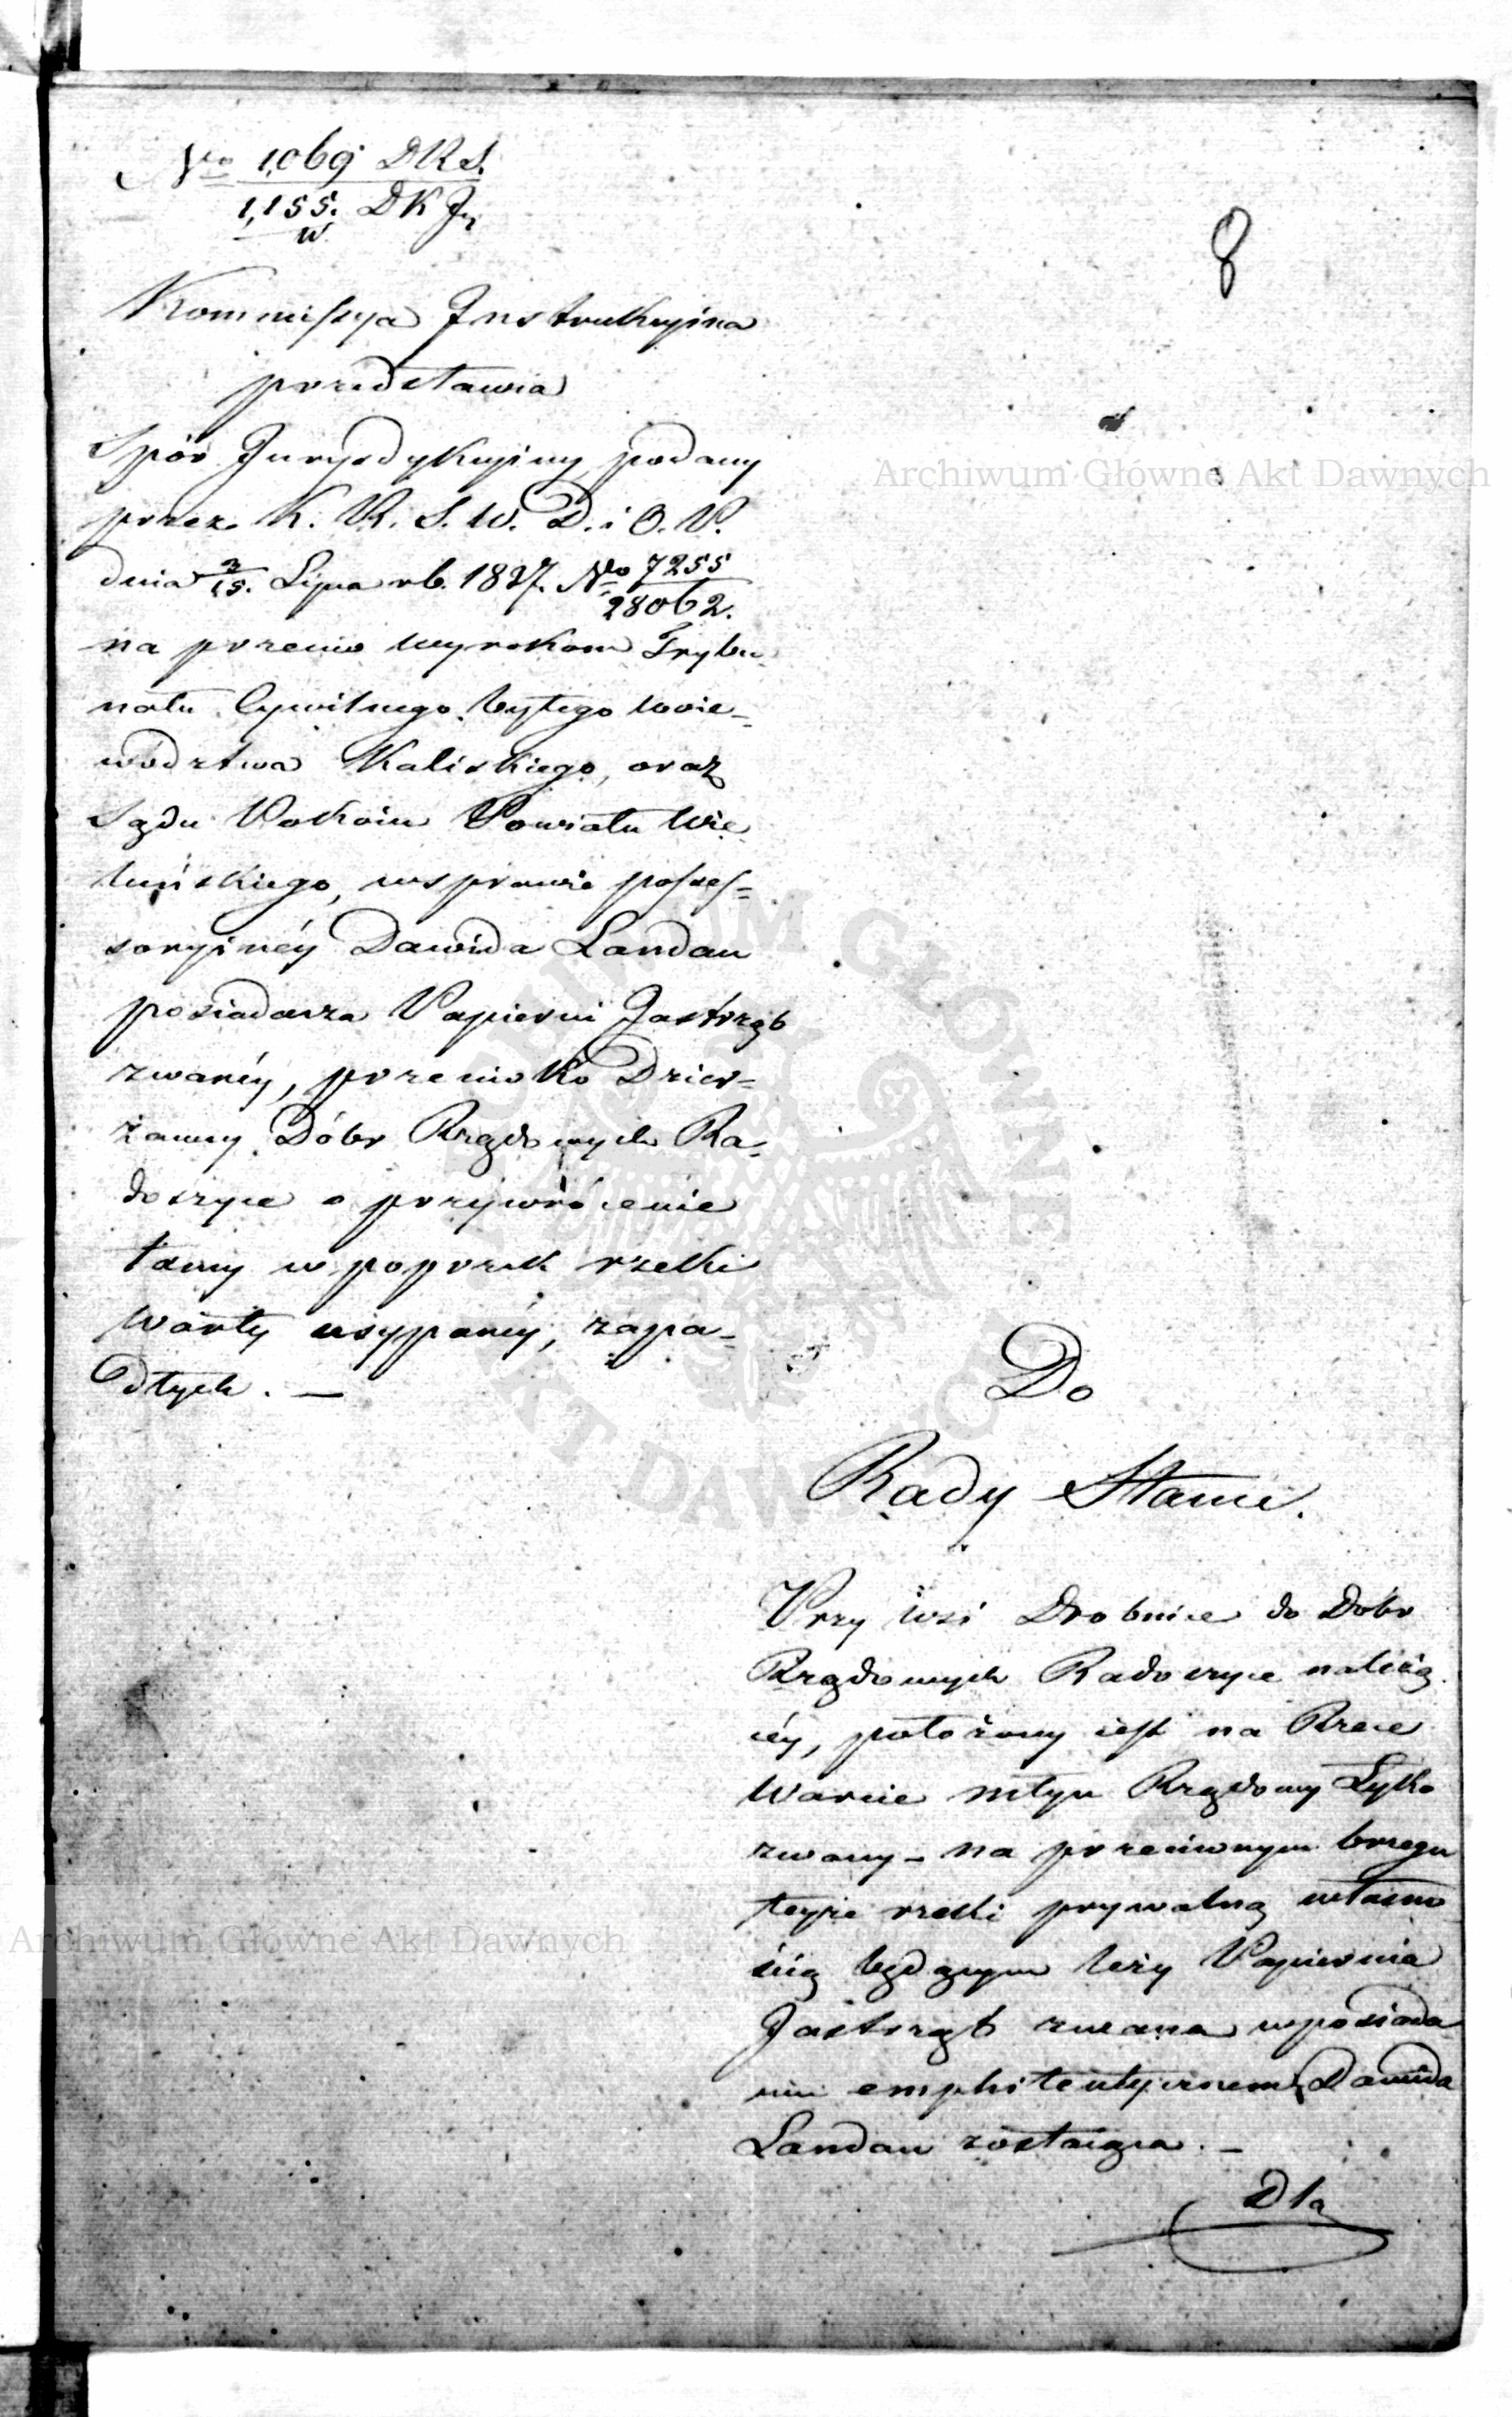 No 1,069 D.R.S.
1,155. D K Jn
w.
8
Kommissya Instrukcyina
przedstawia
Spór Jurysdykcyiny podany
przez K. R. S. W. D. i O. P.
dnia 3/15. Lipca rb. 1837. No 7255
28062.
na przeciw wyrokom Trybu-
nału Cywilnego byłego Woie-
wództwa Kaliskiego, oraz
Sądu Pokoiu Powiatu Wie-
luńskiego, w sprawie posses=
soryinéy Dawida Landau
posiadacza Papierni Jastrząb
zwanéy, przeciwko Dzier=
żawcy Dóbr Rządowych Ra-
doszyce o przywrócenie
tamy w poprzek rzeki
Warty usypanéy, zapa-
dłych. —
Do
Rady Stanu.
Przy wsi Drobnice do Dóbr
Rządowych Radoszyce należą
céy, położony iest na Rzece
Warcie młyn Rządowy Łyko
zwany - na przeciwnym brzegu
teyże rzeki prywatną własno
ścią będącym leży Papiernia
Jastrząb zwana w posiada
niu emphiteutycznem Dawida
Landau zostaiąca. —
Dla
Archiwum Główne Akt Dawnych
Archiwum Główne Akt Dawnych
ARCHIWUM GŁÓWNE AKT DAWNYCH